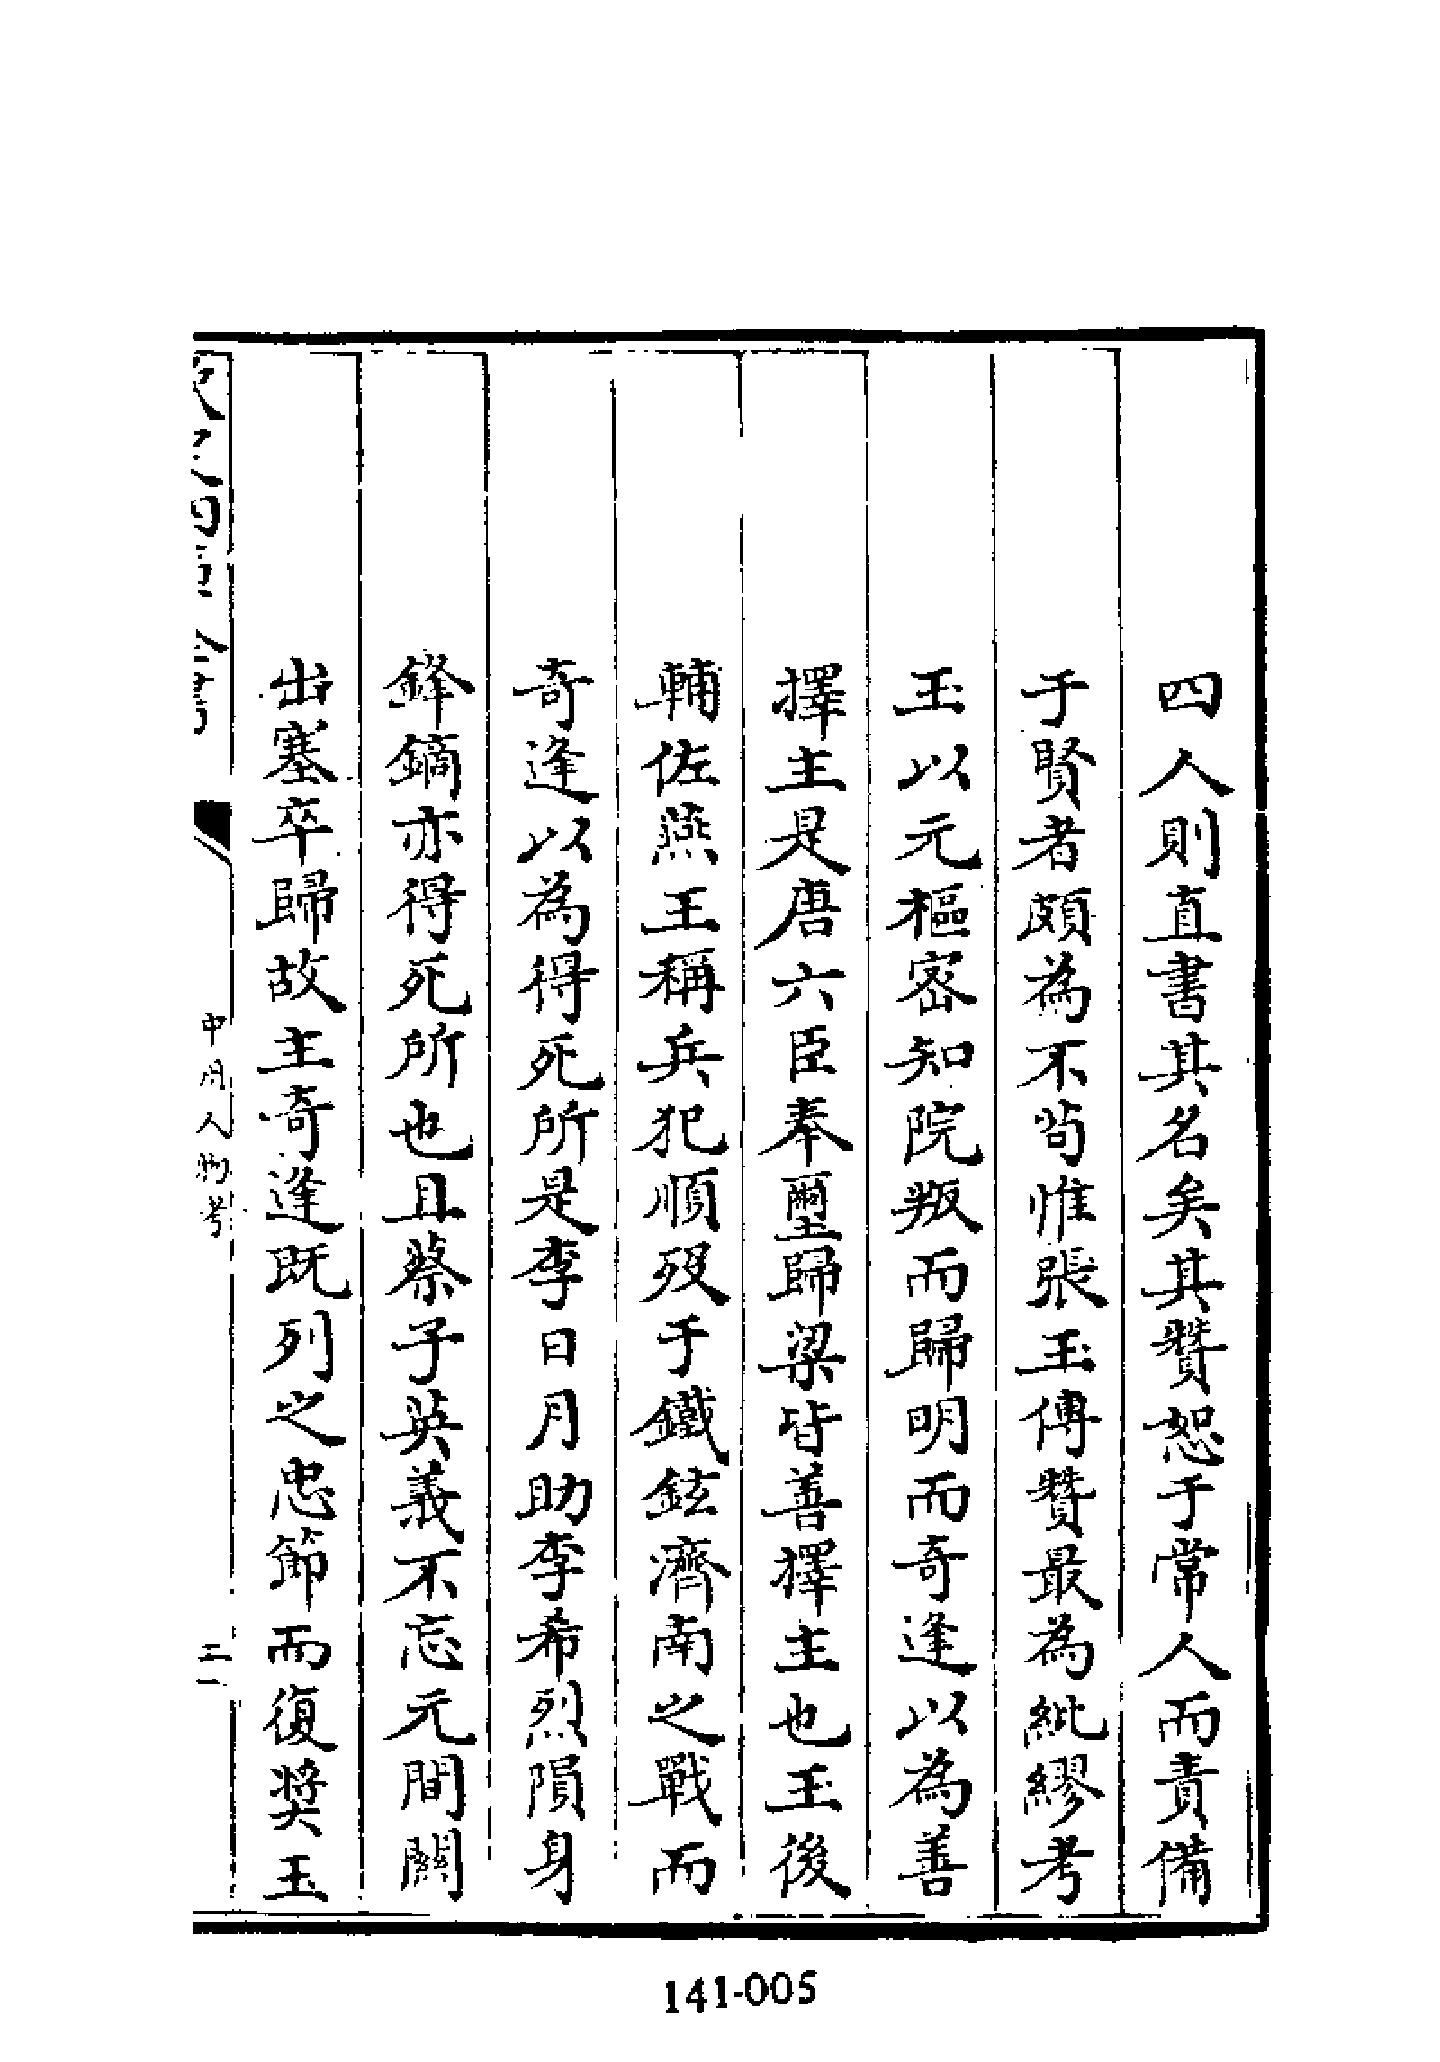 四人則直書其名矣其贊恕于常人而責備
于賢者頗為不茍惟張玉傳贊最為紕繆考
玉以元樞密知院叛而歸明而奇逢以為善
擇主是唐六臣奉璽歸梁皆善擇主也玉後
輔佐燕王稱兵犯順歿于鐵鉉濟南之戰而
奇逢以為得死所是李日月助李希烈隕身
鋒鏑亦得死所也且蔡子英義不忘元間關
出塞卒歸故主奇逢既列之忠節而復奬玉
欽定四庫全書
中州人物考
二
141-005